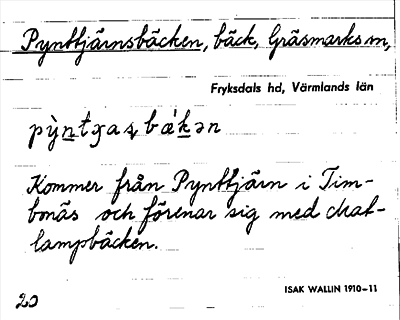 Pynttjärnsbäcken, bäck, Gräsmarks sn,
Fryksdals hd, Värmlands län
Kommer från Pynttjärn i Tim-
bonäs och förenar sig med
lampbäcken.
ISAK WALLIN 1910-11
20